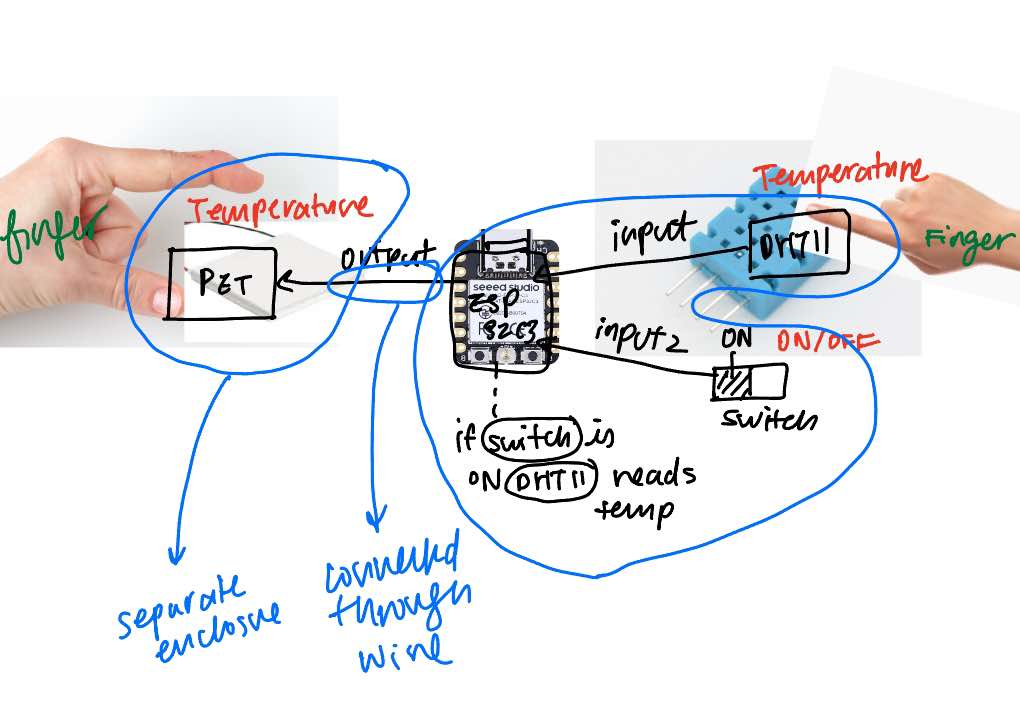 finger
Temperature
PET
output
seeed studio
ESP
32C3
input
Temperature
DHT11
Finger
input 2
ON
ON/OFF
switch
if switch is
ON DHT11 reads
temp
separate
enclosue
connected
through
wire